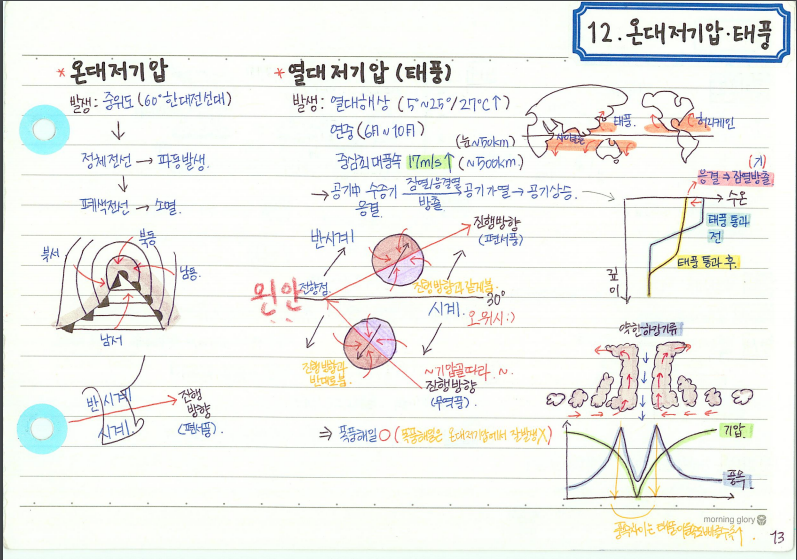 12. 온대저기압·태풍
* 온대저기압
발생: 중위도 (60° 한대전선대)
정체전선 → 파동발생.
폐색전선 → 소멸.
북서
북동
남동
남서
반시계
시계
진행
방향
(편서풍)
* 열대저기압 (태풍)
발생: 열대해상 (5°~25°/27°C↑)
연중 (6月~10月)
(눈~50km)
중심최대풍속 17m/s↑ (~500km)
→ 공기中 수증기 잠열(응결열) 공기가열 → 공기상승
응결 방출
반시계
진행방향
(편서풍)
전향점
30°
진행방향과 같게붊.
시계.
오뭐시:)
진행방향과
반대로붊.
~기압골따라.~
진행방향
(무역풍)
⇒ 폭풍해일 O (폭풍해일은 온대저기압에서 잘발생X)
태풍.
허리케인
사이클론
(기)
응결 → 잠열방출
수온
태풍 통과
전
태풍 통과 후.
깊이
약한하강기류
기압
풍속.
morning glory
13